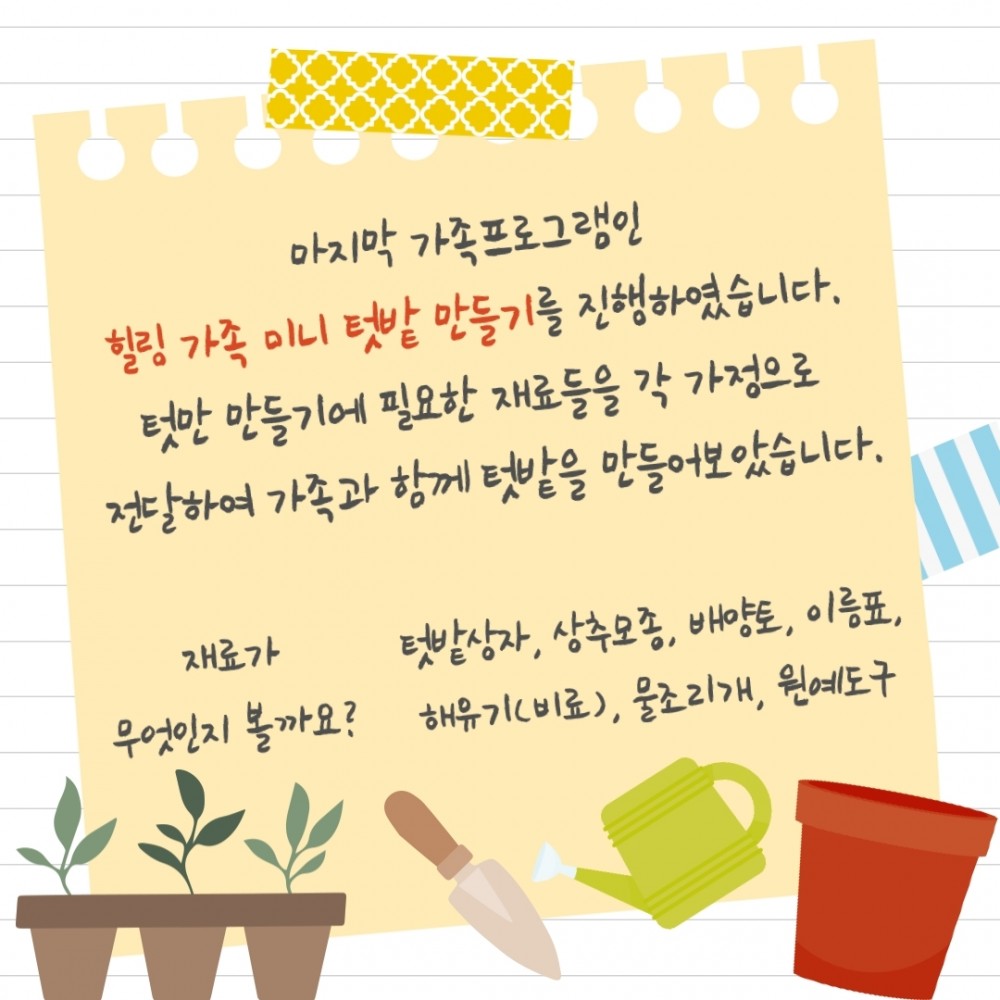 마지막 가족프로그램인
힐링 가족 미니 텃밭 만들기를 진행하였습니다.
텃만 만들기에 필요한 재료들을 각 가정으로
전달하여 가족과 함께 텃밭을 만들어보았습니다.
재료가
무엇인지 볼까요?
텃밭상자, 상추모종, 배양토, 이름표,
해유기(비료), 물조리개, 원예도구